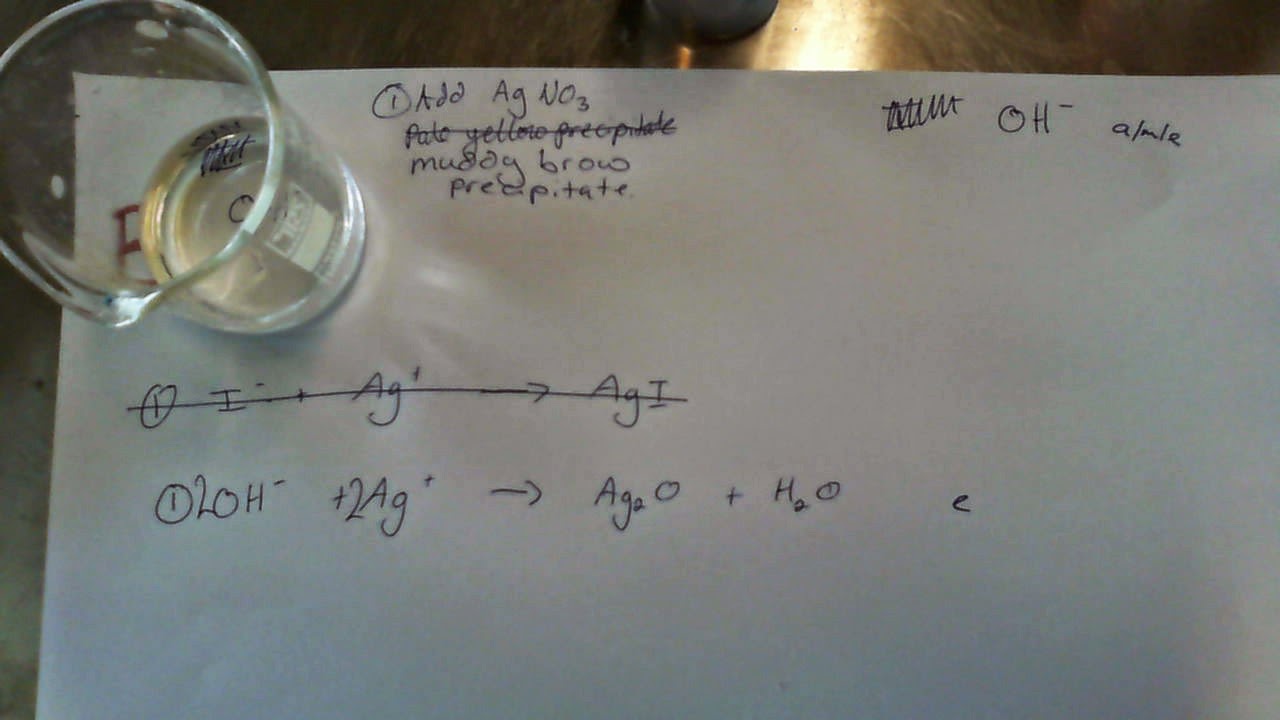 ① Add AgNO₃
Pale yellow precipitate
muddy brow
precipitate.
OH⁻ a/m/e
① I⁻ + Ag⁺ → AgI
① 2OH⁻ + 2Ag⁺ → Ag₂O + H₂O e